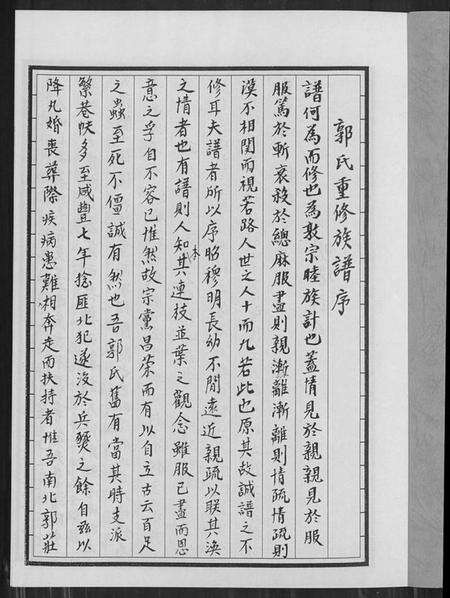 郭氏重修族譜序
譜何為而修也為敦宗睦族計也蓋情見於親親見於服
服篤於斬衰殺於緦麻服盡則親漸離漸離則情疏情疏則
漠不相関而視若路人世之人十而九若此也原其故誠譜之不
修耳夫譜者所以序昭穆明長幼不間遠近親疏以聯其渙
之情者也有譜則人知其本連枝並葉之觀念雖服已盡而恩
意之孚自不容已惟然故宗黨昌榮而有以自立古云百足
之蟲至死不僵誠有然也吾郭氏舊有當其時支派
繁巷帙多至咸豐七年捻匪北犯遂沒於兵燹之餘自茲以
降凡婚喪葬際疾病患難相奔走而扶持者惟吾南北郭莊